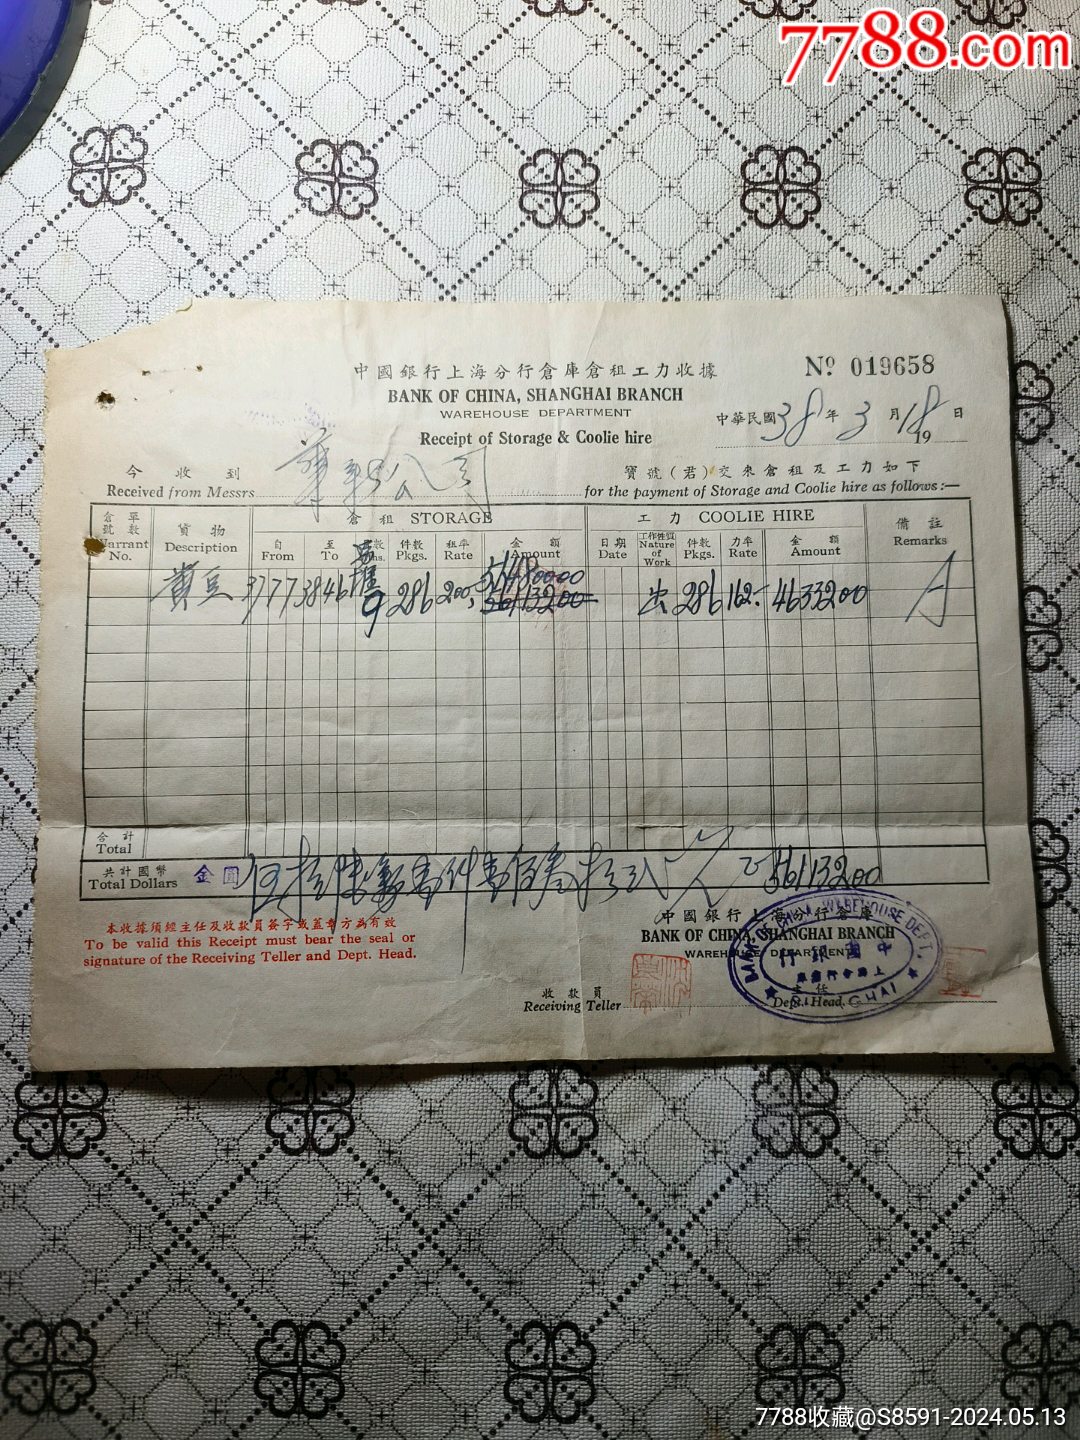 7788.com
中國銀行上海分行倉庫倉租工力收據
Nº 019658
BANK OF CHINA, SHANGHAI BRANCH
WAREHOUSE DEPARTMENT
中華民國38年3月18日
19
Receipt of Storage & Coolie hire
今收到
公司
寶號(君)交來倉租及工力如下
Received from Messrs
for the payment of Storage and Coolie hire as follows:—
倉單號數 Warrant No.
貨物 Description
倉租 STORAGE
工力 COOLIE HIRE
備註 Remarks
自 From
至 To
件數 Pkgs.
租率 Rate
金額 Amount
日期 Date
工作性質 Nature of Work
件數 Pkgs.
力率 Rate
金額 Amount
514800.00
黃豆 9 286 200. 561132.00 出 286 162.- 46332.00
合計 Total
共計國幣 Total Dollars
金圓
561132.00
本收據須經主任及收款員簽字或蓋章方為有效
To be valid this Receipt must bear the seal or
signature of the Receiving Teller and Dept. Head.
中國銀行上海分行倉庫
BANK OF CHINA, SHANGHAI BRANCH
WAREHOUSE DEPARTMENT
收款員 Receiving Teller
主任 Dept. Head.
BANK OF CHINA WAREHOUSE DEPT.
中國銀行
上海分行倉庫
SHANGHAI
7788收藏@S8591-2024.05.13